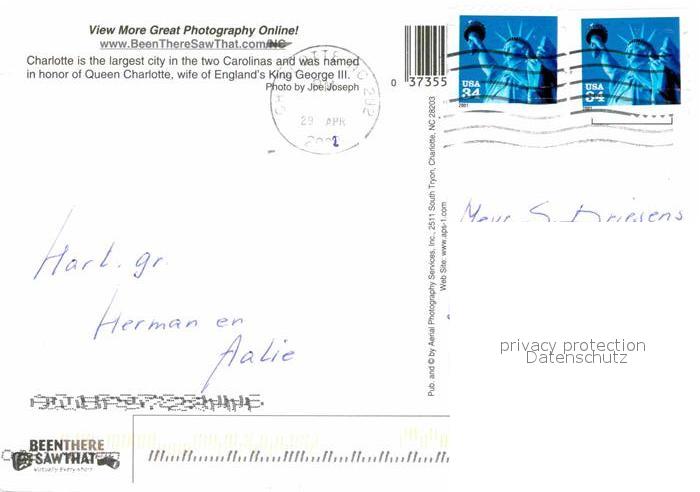 View More Great Photography Online!
www.BeenThereSawThat.com/NC
Charlotte is the largest city in the two Carolinas and was named
in honor of Queen Charlotte, wife of England's King George III.
Photo by Joe Joseph
29 APR
0 37355
USA
34
2001
USA
34
2001
Pub. and © by Aerial Photography Services, Inc., 2511 South Tryon, Charlotte, NC 28203
Web Site: www.aps-1.com
Mevr S. Driesens
Hart. gr.
Herman en
Aalie
privacy protection
Datenschutz
BEENTHERE
SAWTHAT
Virtually Everywhere